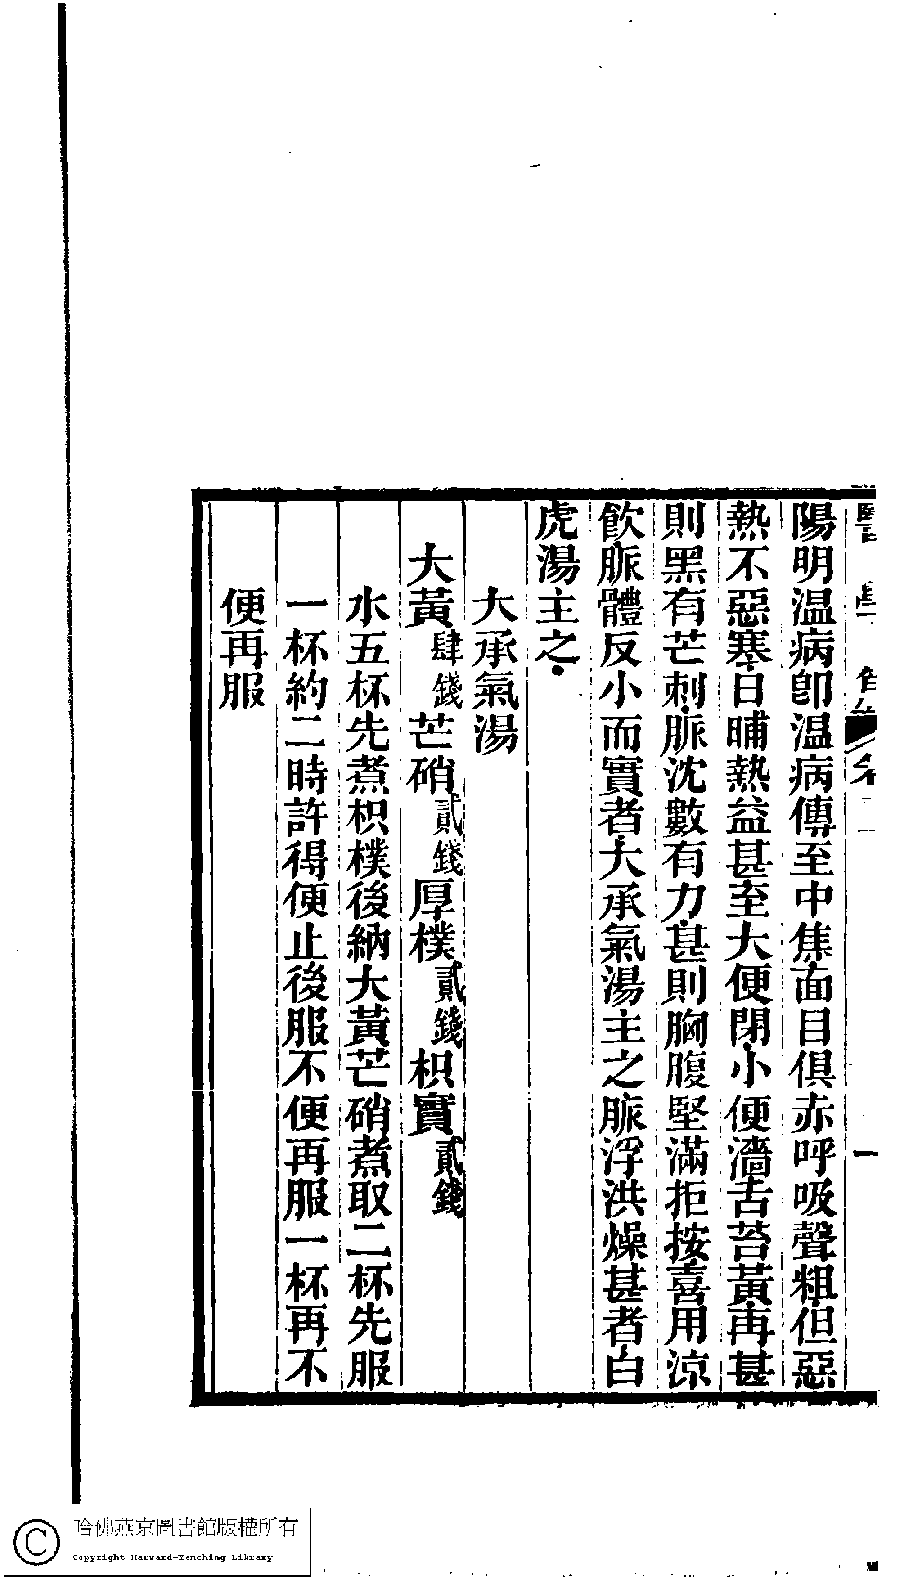 陽明温病卽温病傳至中焦面目俱赤呼吸聲粗但惡
熱不惡寒日晡熱益甚至大便閉小便濇舌苔黃再甚
則黑有芒刺脈沈數有力甚則胸腹堅滿拒按喜用涼
飲脈體反小而實者大承氣湯主之脈浮洪燥甚者白
虎湯主之
大承氣湯
大黃肆錢芒硝貳錢厚樸貳錢枳實貳錢
水五杯先煮枳樸後納大黃芒硝煮取二杯先服
一杯約二時許得便止後服不便再服一杯再不
便再服
哈佛燕京圖書館版權所有
Copyright Harvard-Yenching Library